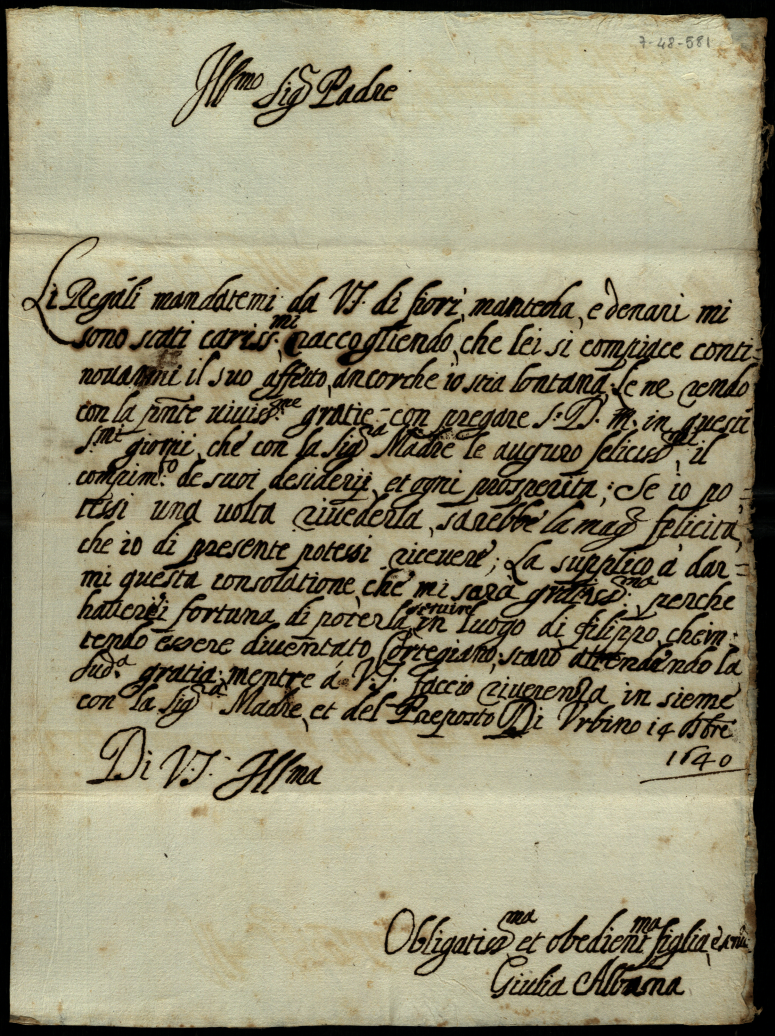 7-48-581
Ill.mo Sig.r Padre
Li Regali mandatemi da V.S. di fiori, mantecha, e denari mi
sono stati cariss.mi raccogliendo, che lei si compiace conti-
novarmi il suo affetto, ancorche io stia lontana, le ne rendo
con la pnte viviss.me gratie, con pregare S. D. M. in questi
S.mi giorni, che con la Sig.ra Madre le auguro feliciss.mi il
compim.to de suoi desiderij, et ogni prosperita; Se io po-
tessi una volta rivederla, sarebbe la mag.r felicità,
che io di presente potessi ricevere; La supplico à dar-
mi questa consolatione, che mi sarà gratiss.ma, perche
haverei fortuna di poterla servire in luogo di filippo, che in-
tendo essere diventato Cortegiano, starò attendendo la
sud.a gratia; mentre à V.S. faccio riverenza in sieme
con la Sig.ra Madre, et del Preposto Di Urbino 14 Xbre
1640
Di V.S. Ill.ma
Obligatiss.ma et obedient.ma figlia
Giulia Albana